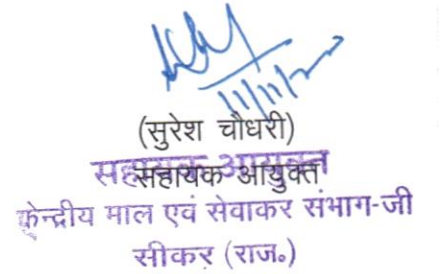 11/11/20
(सुरेश चौधरी)
सहायक आयुक्त
सहायक आयुक्त
केन्द्रीय माल एवं सेवाकर संभाग-जी
सीकर (राज॰)